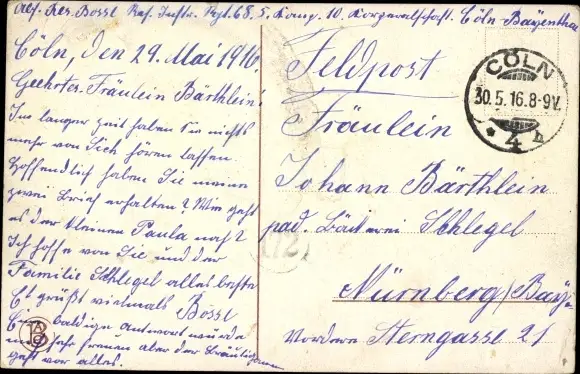 Abs. Res. Bosse Res. Inftr. Rgt. 68. 5. Komp. 10. Korporalschaft. Cöln Bayenthal
Cöln, den 29. Mai 1916.
Geehrtes Fräulein Bärthlein!
Im langer zeit haben Sie nichts
mehr von Sich hören lassen.
Hoffendlich haben Sie meine
zwei Brief erhalten? Wie geht
es der kleinen Paula noch?
Ich hoffe von Sie und der
Familie Schlegel alles beste
Es grüßt vielmals Bosse
baldige antwort würde
mich sehr freuen aber der Bräutigam
geht vor alles.
Feldpost
Fräulein
Johann Bärthlein
pad. Bäckerei Schlegel
Nürnberg/Bay.
Vordere Sterngasse 21
CÖLN
30.5.16.8-9V.
* 4 h
172